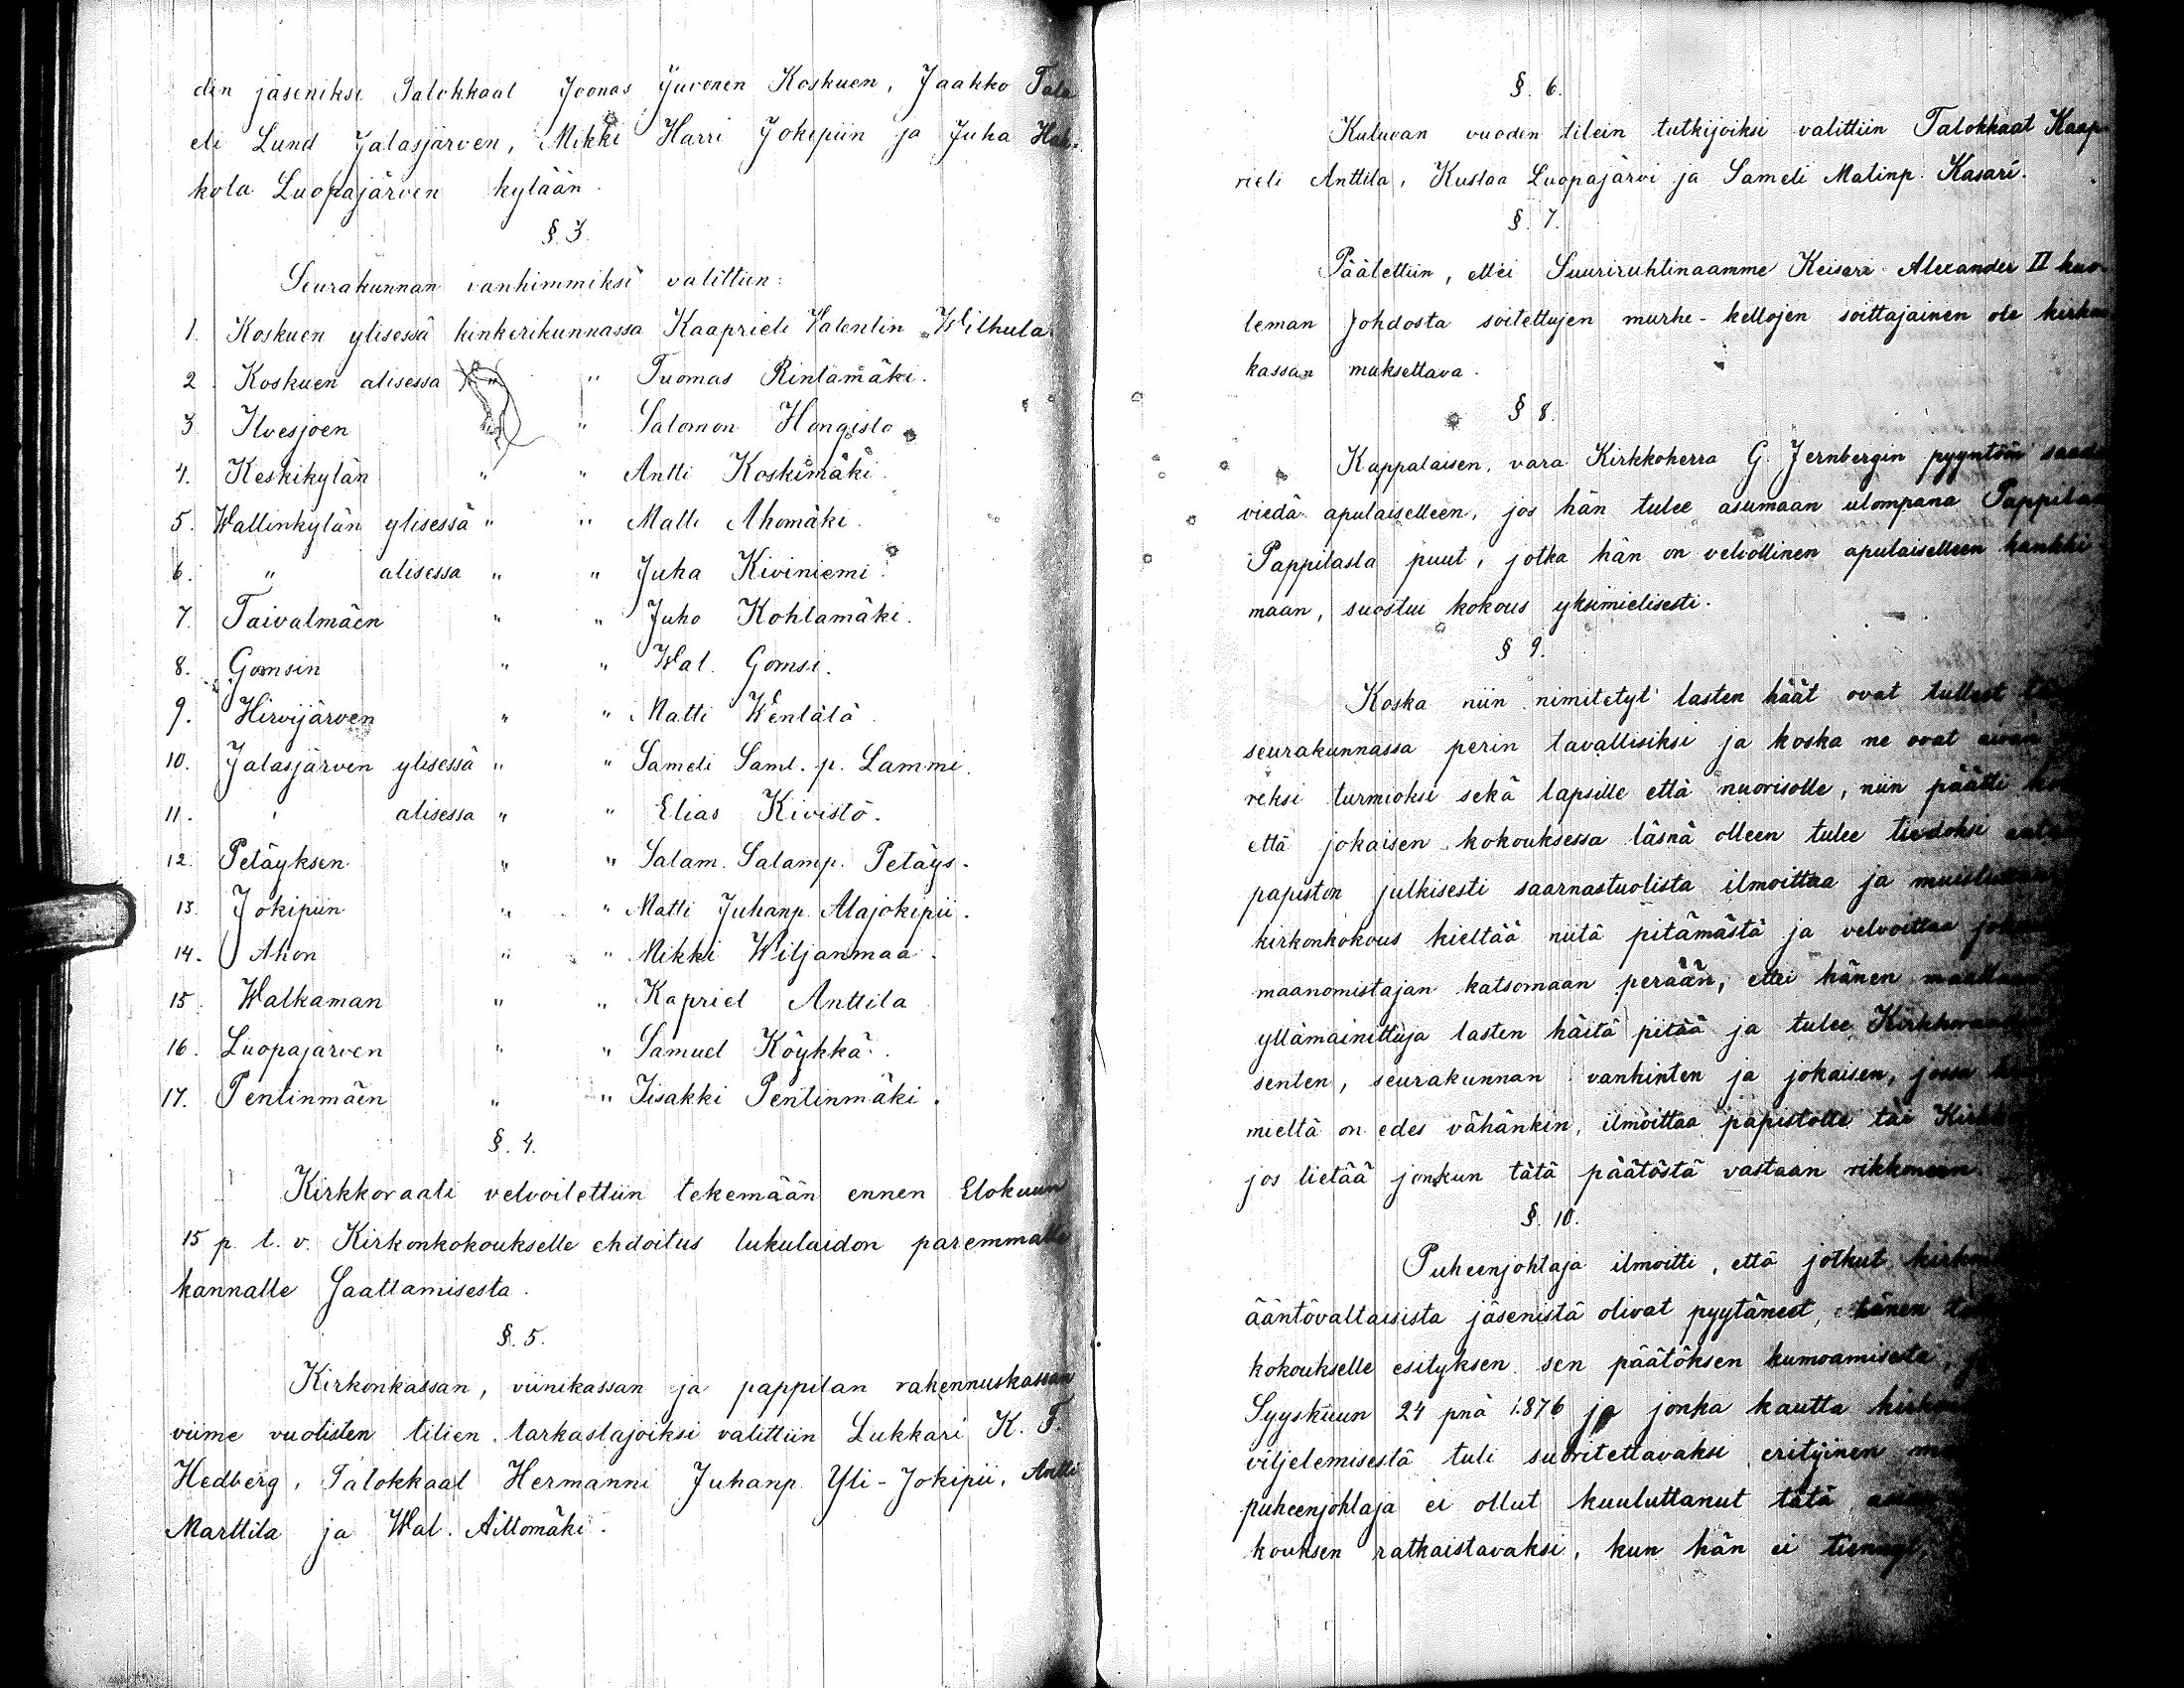 din jäseniksi Talokkaat Joonas Yuvonen Koskuen, Jaakko Tala
eli Lund Jalasjärven, Mikki Harri Jokipiin ja Juha Hak-
kola Luopajärven kylään.
§. 3.
Seurakunnan vanhimmiksi valittiin:
1. Koskuen ylisessä kinkerikunnassa Kaaprieli Valentin Wilhula.
2. Koskuen alisessa " " Tuomas Rintamäki.
3. Ilvesjoen " Salomon Hongisto
4. Keskikylän " " Antti Koskimäki.
5. Wallinkylän ylisessä " " Matti Ahomäki.
6. " alisessa " " Juha Kiviniemi.
7. Taivalmäen " " Juho Kohlamäki.
8. Gomsin " " Wal. Gomsi.
9. Hirvijärven " " Matti Wentälä.
10. Jalasjärven ylisessä " " Sameli Saml. p. Lammi.
11. " alisessa " " Elias Kivistö.
12. Petäyksen " " Salam. Salamp. Petäys.
13. Jokipiin " " Matti Juhanp. Alajokipii.
14. Ahon " " Mikki Wiljanmaa.
15. Walkaman " " Kapriel Anttila
16. Luopajärven " " Samuel Köykkä.
17. Pentinmäen " " Iisakki Pentinmäki.
§. 4.
Kirkkoraati velvoitettiin tekemään ennen Elokuun
15 p. t. v. Kirkonkokoukselle ehdoitus lukutaidon paremmalle
kannalle saattamisesta.
§. 5.
Kirkonkassan, viinikassan ja pappilan rakennuskassan
viime vuotisten tilien tarkastajoiksi valittiin Lukkari K. F.
Hedberg, Talokkaat Hermanni Juhanp. Yli-Jokipii, Antti
Marttila ja Wal. Aittomäki.
§. 6.
Kuluvan vuoden tilein tutkijoiksi valittiin Talokkaat Kaap-
rieli Anttila, Kustaa Luopajärvi ja Sameli Matinp. Kasari.
§. 7.
Päätettiin, ettei Suuriruhtinaamme Keisari Alexander II kuo-
leman johdosta soitettujen murhe-kellojen soittajainen ole kirkon
kassan maksettava.
§ 8.
Kappalaisen, vara Kirkkoherra G. Jernbergin pyyntöön saada
viedä apulaiselleen, jos hän tulee asumaan ulompana Pappilaa
Pappilasta puut, jotka hän on velvollinen apulaiselleen hankki-
maan, suostui kokous yksimielisesti.
§ 9.
Koska niin nimitetyt lasten häät ovat tulleet
seurakunnassa perin tavallisiksi ja koska ne ovat aivan
reksi turmioksi sekä lapsille että nuorisolle, niin päätti
että jokaisen kokouksessa läsnä olleen tulee tiedoksi
papiston julkisesti saarnastuolista ilmoittaa ja
kirkonkokous kieltää niitä pitämästä ja velvoittaa
maanomistajan katsomaan perään, ettei hänen
yllämainittuja lasten häitä pitää ja tulee
senten, seurakunnan vanhinten ja jokaisen, jossa
mieltä on edes vähänkin, ilmoittaa papistolle tai
jos tietää jonkun tätä päätöstä vastaan rikkoneen.
§. 10.
Puheenjohtaja ilmoitti, että jotkut
ääntövaltaisista jäsenistä olivat pyytäneet, hänen
kokoukselle esityksen sen päätöksen kumoamisesta,
Syyskuun 24 pnä 1876 ja jonka kautta
viljelemisestä tuli suoritettavaksi erityinen
puheenjohtaja ei ollut kuuluttanut tätä
kouksen ratkaistavaksi, kun hän ei